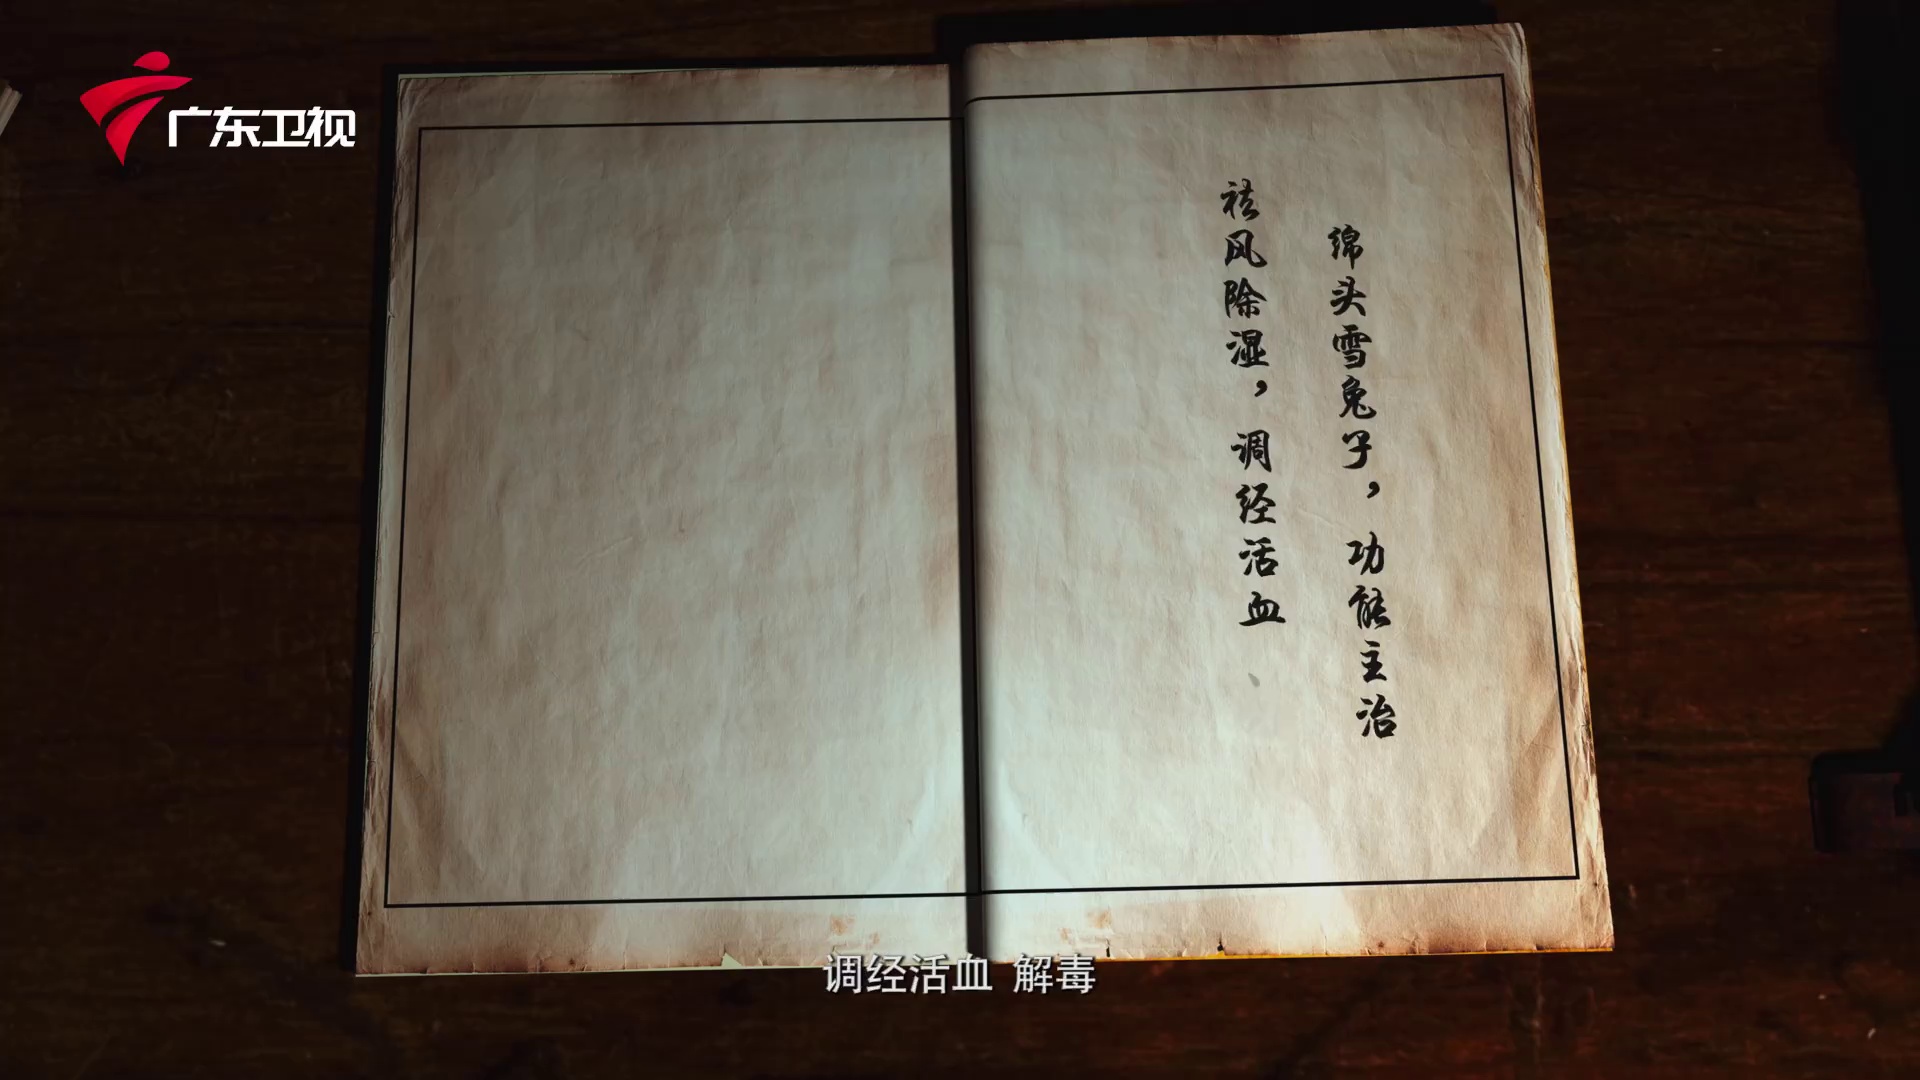 广东卫视
绵头雪兔子，功能主治
祛风除湿，调经活血
调经活血 解毒